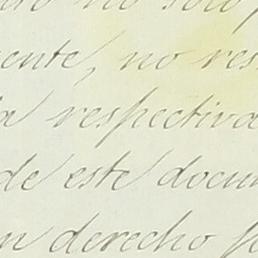 no solo
ente, no res
a respectiva
de este docum
n derecho